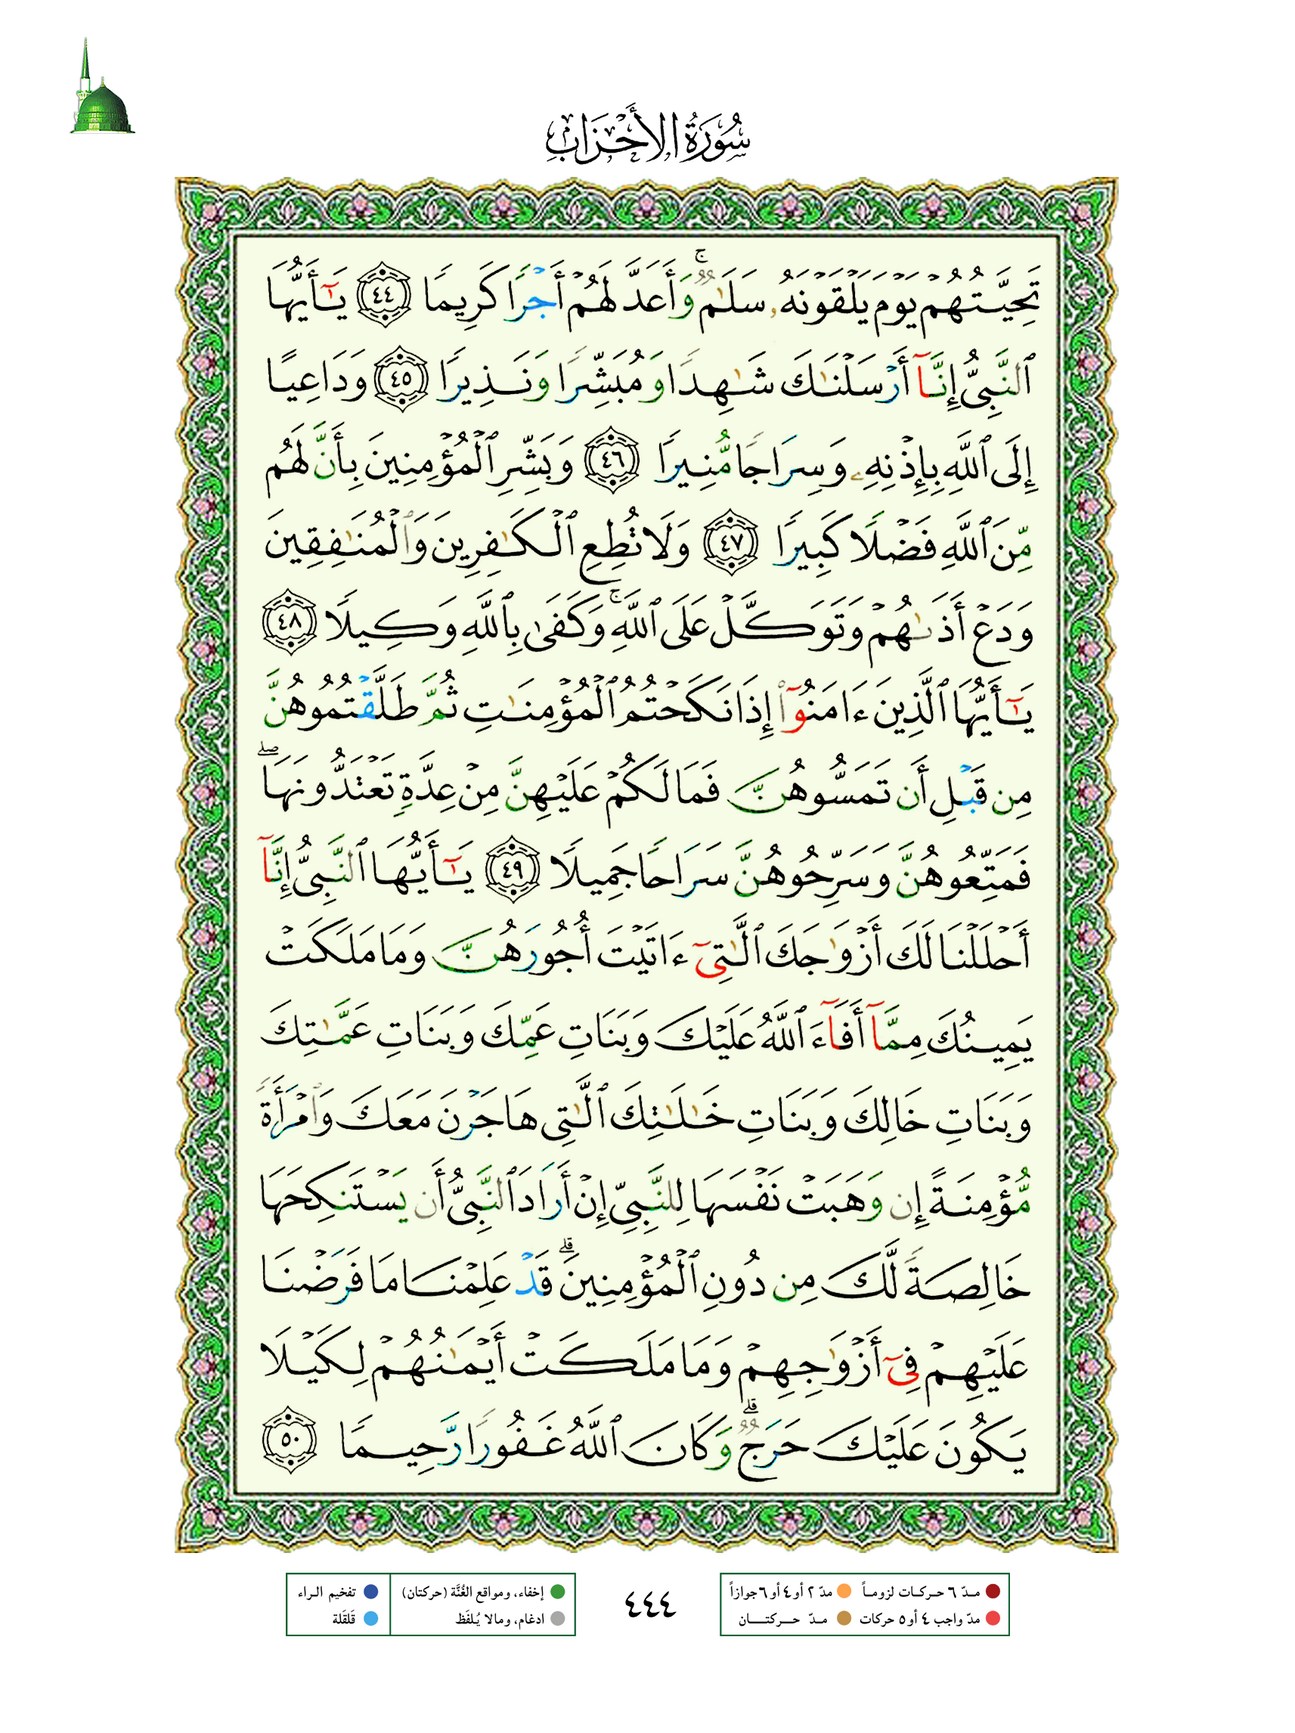 سُورَةُ الأَحْزَابِ
تَحِيَّتُهُمْ يَوْمَ يَلْقَوْنَهُۥ سَلَٰمٌۚ وَأَعَدَّ لَهُمْ أَجْرًا كَرِيمًا ٤٤ يَٰٓأَيُّهَا
ٱلنَّبِىُّ إِنَّآ أَرْسَلْنَٰكَ شَٰهِدًا وَمُبَشِّرًا وَنَذِيرًا ٤٥ وَدَاعِيًا
إِلَى ٱللَّهِ بِإِذْنِهِۦ وَسِرَاجًا مُّنِيرًا ٤٦ وَبَشِّرِ ٱلْمُؤْمِنِينَ بِأَنَّ لَهُم
مِّنَ ٱللَّهِ فَضْلًا كَبِيرًا ٤٧ وَلَا تُطِعِ ٱلْكَٰفِرِينَ وَٱلْمُنَٰفِقِينَ
وَدَعْ أَذَىٰهُمْ وَتَوَكَّلْ عَلَى ٱللَّهِۚ وَكَفَىٰ بِٱللَّهِ وَكِيلًا ٤٨
يَٰٓأَيُّهَا ٱلَّذِينَ ءَامَنُوٓا۟ إِذَا نَكَحْتُمُ ٱلْمُؤْمِنَٰتِ ثُمَّ طَلَّقْتُمُوهُنَّ
مِن قَبْلِ أَن تَمَسُّوهُنَّ فَمَا لَكُمْ عَلَيْهِنَّ مِنْ عِدَّةٍ تَعْتَدُّونَهَاۖ
فَمَتِّعُوهُنَّ وَسَرِّحُوهُنَّ سَرَاحًا جَمِيلًا ٤٩ يَٰٓأَيُّهَا ٱلنَّبِىُّ إِنَّآ
أَحْلَلْنَا لَكَ أَزْوَٰجَكَ ٱلَّٰتِىٓ ءَاتَيْتَ أُجُورَهُنَّ وَمَا مَلَكَتْ
يَمِينُكَ مِمَّآ أَفَآءَ ٱللَّهُ عَلَيْكَ وَبَنَاتِ عَمِّكَ وَبَنَاتِ عَمَّٰتِكَ
وَبَنَاتِ خَالِكَ وَبَنَاتِ خَٰلَٰتِكَ ٱلَّٰتِى هَاجَرْنَ مَعَكَ وَٱمْرَأَةً
مُّؤْمِنَةً إِن وَهَبَتْ نَفْسَهَا لِلنَّبِىِّ إِنْ أَرَادَ ٱلنَّبِىُّ أَن يَسْتَنكِحَهَا
خَالِصَةً لَّكَ مِن دُونِ ٱلْمُؤْمِنِينَۗ قَدْ عَلِمْنَا مَا فَرَضْنَا
عَلَيْهِمْ فِىٓ أَزْوَٰجِهِمْ وَمَا مَلَكَتْ أَيْمَٰنُهُمْ لِكَيْلَا
يَكُونَ عَلَيْكَ حَرَجٌۗ وَكَانَ ٱللَّهُ غَفُورًا رَّحِيمًا ٥٠
مـدّ ٦ حـركـات لزومـاً مدّ ٢ أو ٤ أو ٦ جوازاً
مدّ واجب ٤ أو ٥ حركات مـدّ حـــركتـــــان
٤٤٤
إخفاء، ومواقع الغُنَّة (حركتان) تفخيم الـراء
ادغام، ومالا يُـلفَظ قَلقَلة